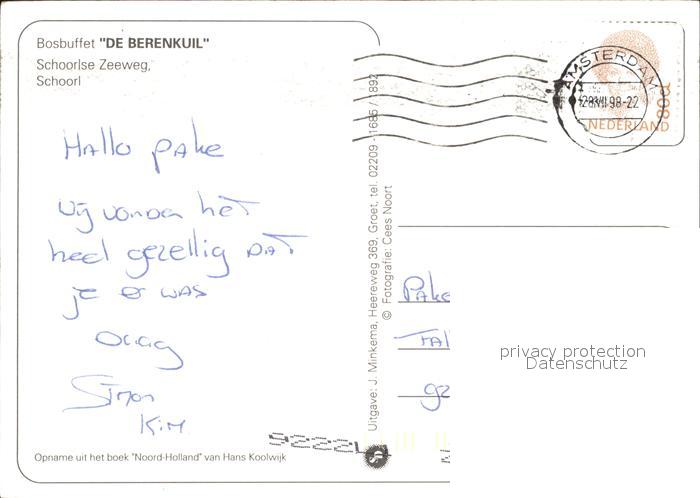 Bosbuffet "DE BERENKUIL"
Schoorlse Zeeweg,
Schoorl
Hallo pake
Wij vonden het
heel gezellig DAT
je er was
Simon
Kim
Opname uit het boek "Noord-Holland" van Hans Koolwijk
Uitgave: J. Minkema, Heereweg 369, Groet, tel. 02209 - 1685 / 1892
© Fotografie: Cees Noort
AMSTERDAM
28VII98-22
80c
NEDERLAND
Pake
privacy protection
Datenschutz